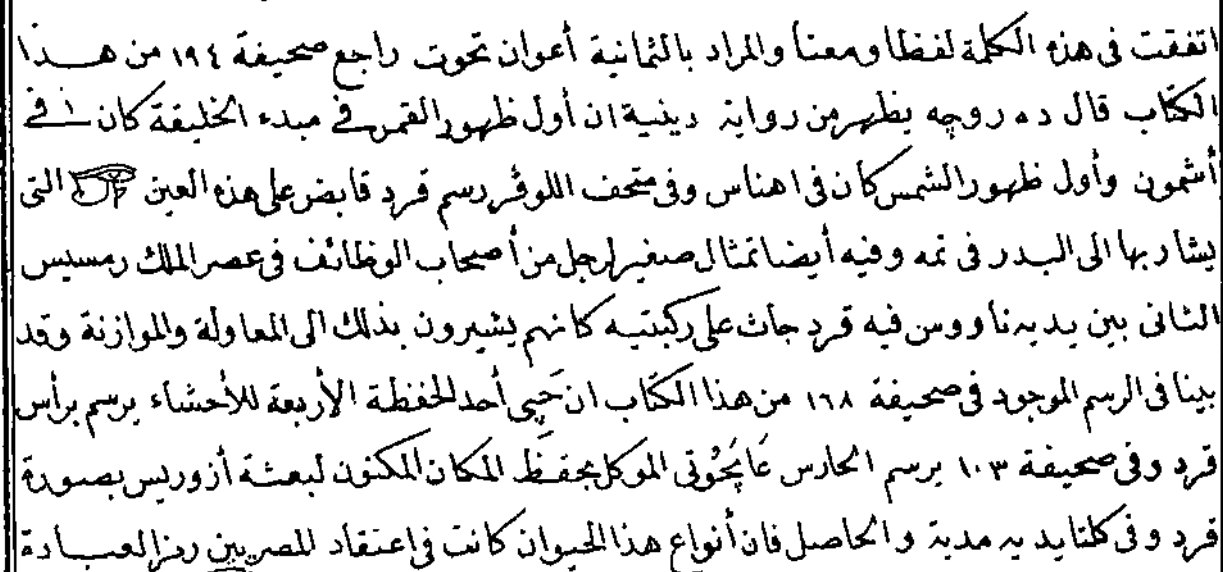 اتفقت فى هذه الكلمة لفظا ومعنا والمراد بالثمانية أعوان تحوت راجع صحيفة ١٩٤ من هــذا
الكتاب قال ده روجه يظهر من رواية دينية ان أول ظهور القمر فى مبدء الخليقة كان فى
أشمون وأول ظهور الشمس كان فى اهناس وفى متحف اللوڤر رسم قرد قابض على هذه العين 𓂀 التى
يشار بها الى البدر فى تمه وفيه أيضا تمثال صغير لرجل من أصحاب الوظائف فى عصر الملك رمسيس
الثانى بين يديه ناووس فيه قرد جاث على ركبتيه كانهم يشيرون بذلك الى المعاولة والموازنة وقد
بينا فى الرسم الموجود فى صحيفة ١٦٨ من هذا الكتاب ان حَپى أحد الحفظة الأربعة للأحشاء يرسم برأس
قرد وفى صحيفة ١٠٣ يرسم الحارس الموكل بحفظ المكان المكنون لبعثة أزوريس بصورة
قرد وفى كلتا يديه مدية والحاصل فان أنواع هذا الحيوان كانت فى اعتقاد المصريين رمز العبــادة